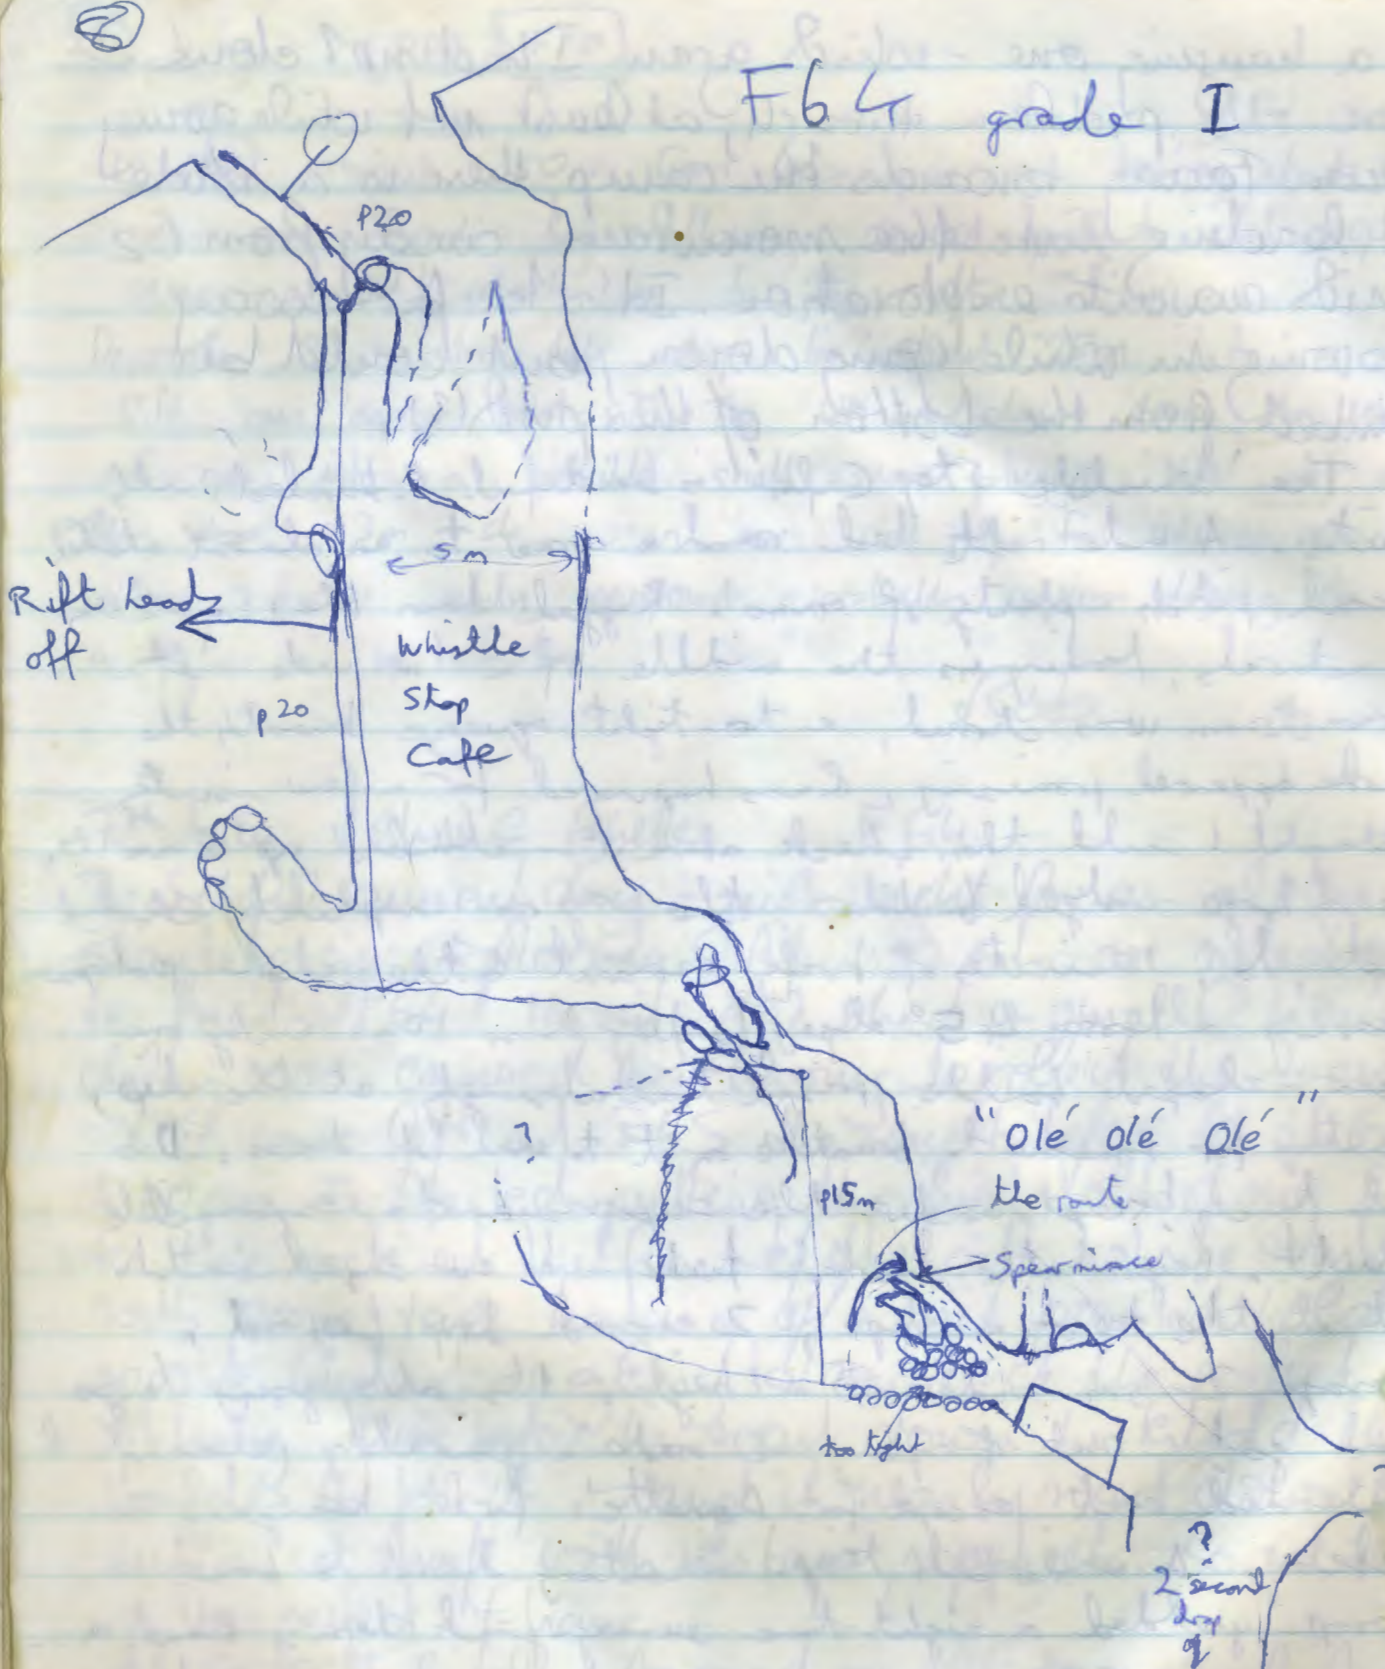 8
F64 grade I
p20
5m
Rift leads
off
Whistle
Stop
Cafe
p20
?
"Olé Olé Olé"
the route
p15m
too tight
?
2 second
drop